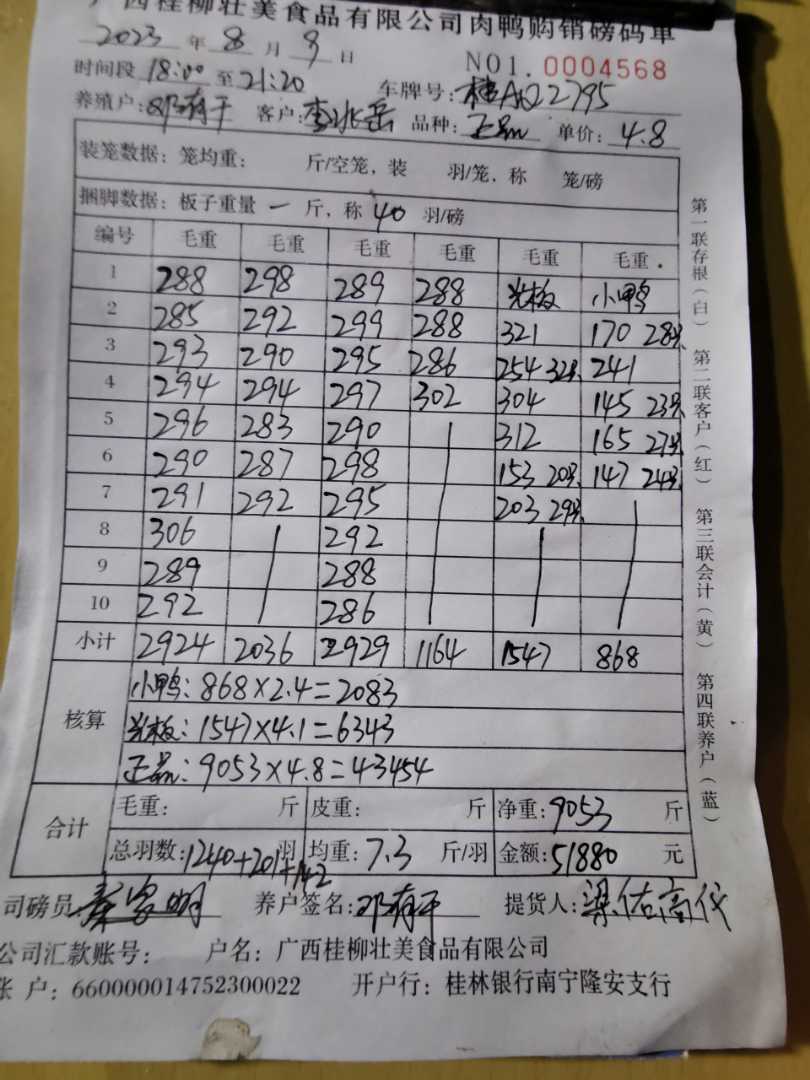 广西桂柳壮美食品有限公司肉鸭购销磅码单
2023 年 8 月 9 日 NO1. 0004568
时间段 18:00 至 21:20 车牌号: 桂A022795
养殖户: 邓有干 客户: 李兆岳 品种: 正品 单价: 4.8
装笼数据: 笼均重: 斤/空笼, 装 羽/笼, 称 笼/磅
捆脚数据: 板子重量 一 斤, 称 40 羽/磅
编号 毛重 毛重 毛重 毛重 毛重 毛重
1 288 298 289 288 光板 小鸭
2 285 292 299 288 321 170 28只
3 293 290 295 286 254 32只 241
4 294 294 297 302 304 145 23只
5 296 283 290 312 165 27只
6 290 287 298 153 20只 147 24只
7 291 292 295 203 29只
8 306 292
9 289 288
10 292 286
小计 2924 2036 2929 1164 1547 868
核算
小鸭: 868×2.4=2083
光板: 1547×4.1=6343
正品: 9053×4.8=43454
合计
毛重: 斤 皮重: 斤 净重: 9053 斤
总羽数: 1240+201+142 羽 均重: 7.3 斤/羽 金额: 51880 元
司磅员: 家明 养户签名: 邓有干 提货人: 梁佑高代
公司汇款账号: 户名: 广西桂柳壮美食品有限公司
账 户: 660000014752300022 开户行: 桂林银行南宁隆安支行
第一联存根(白) 第二联客户(红) 第三联会计(黄) 第四联养户(蓝)